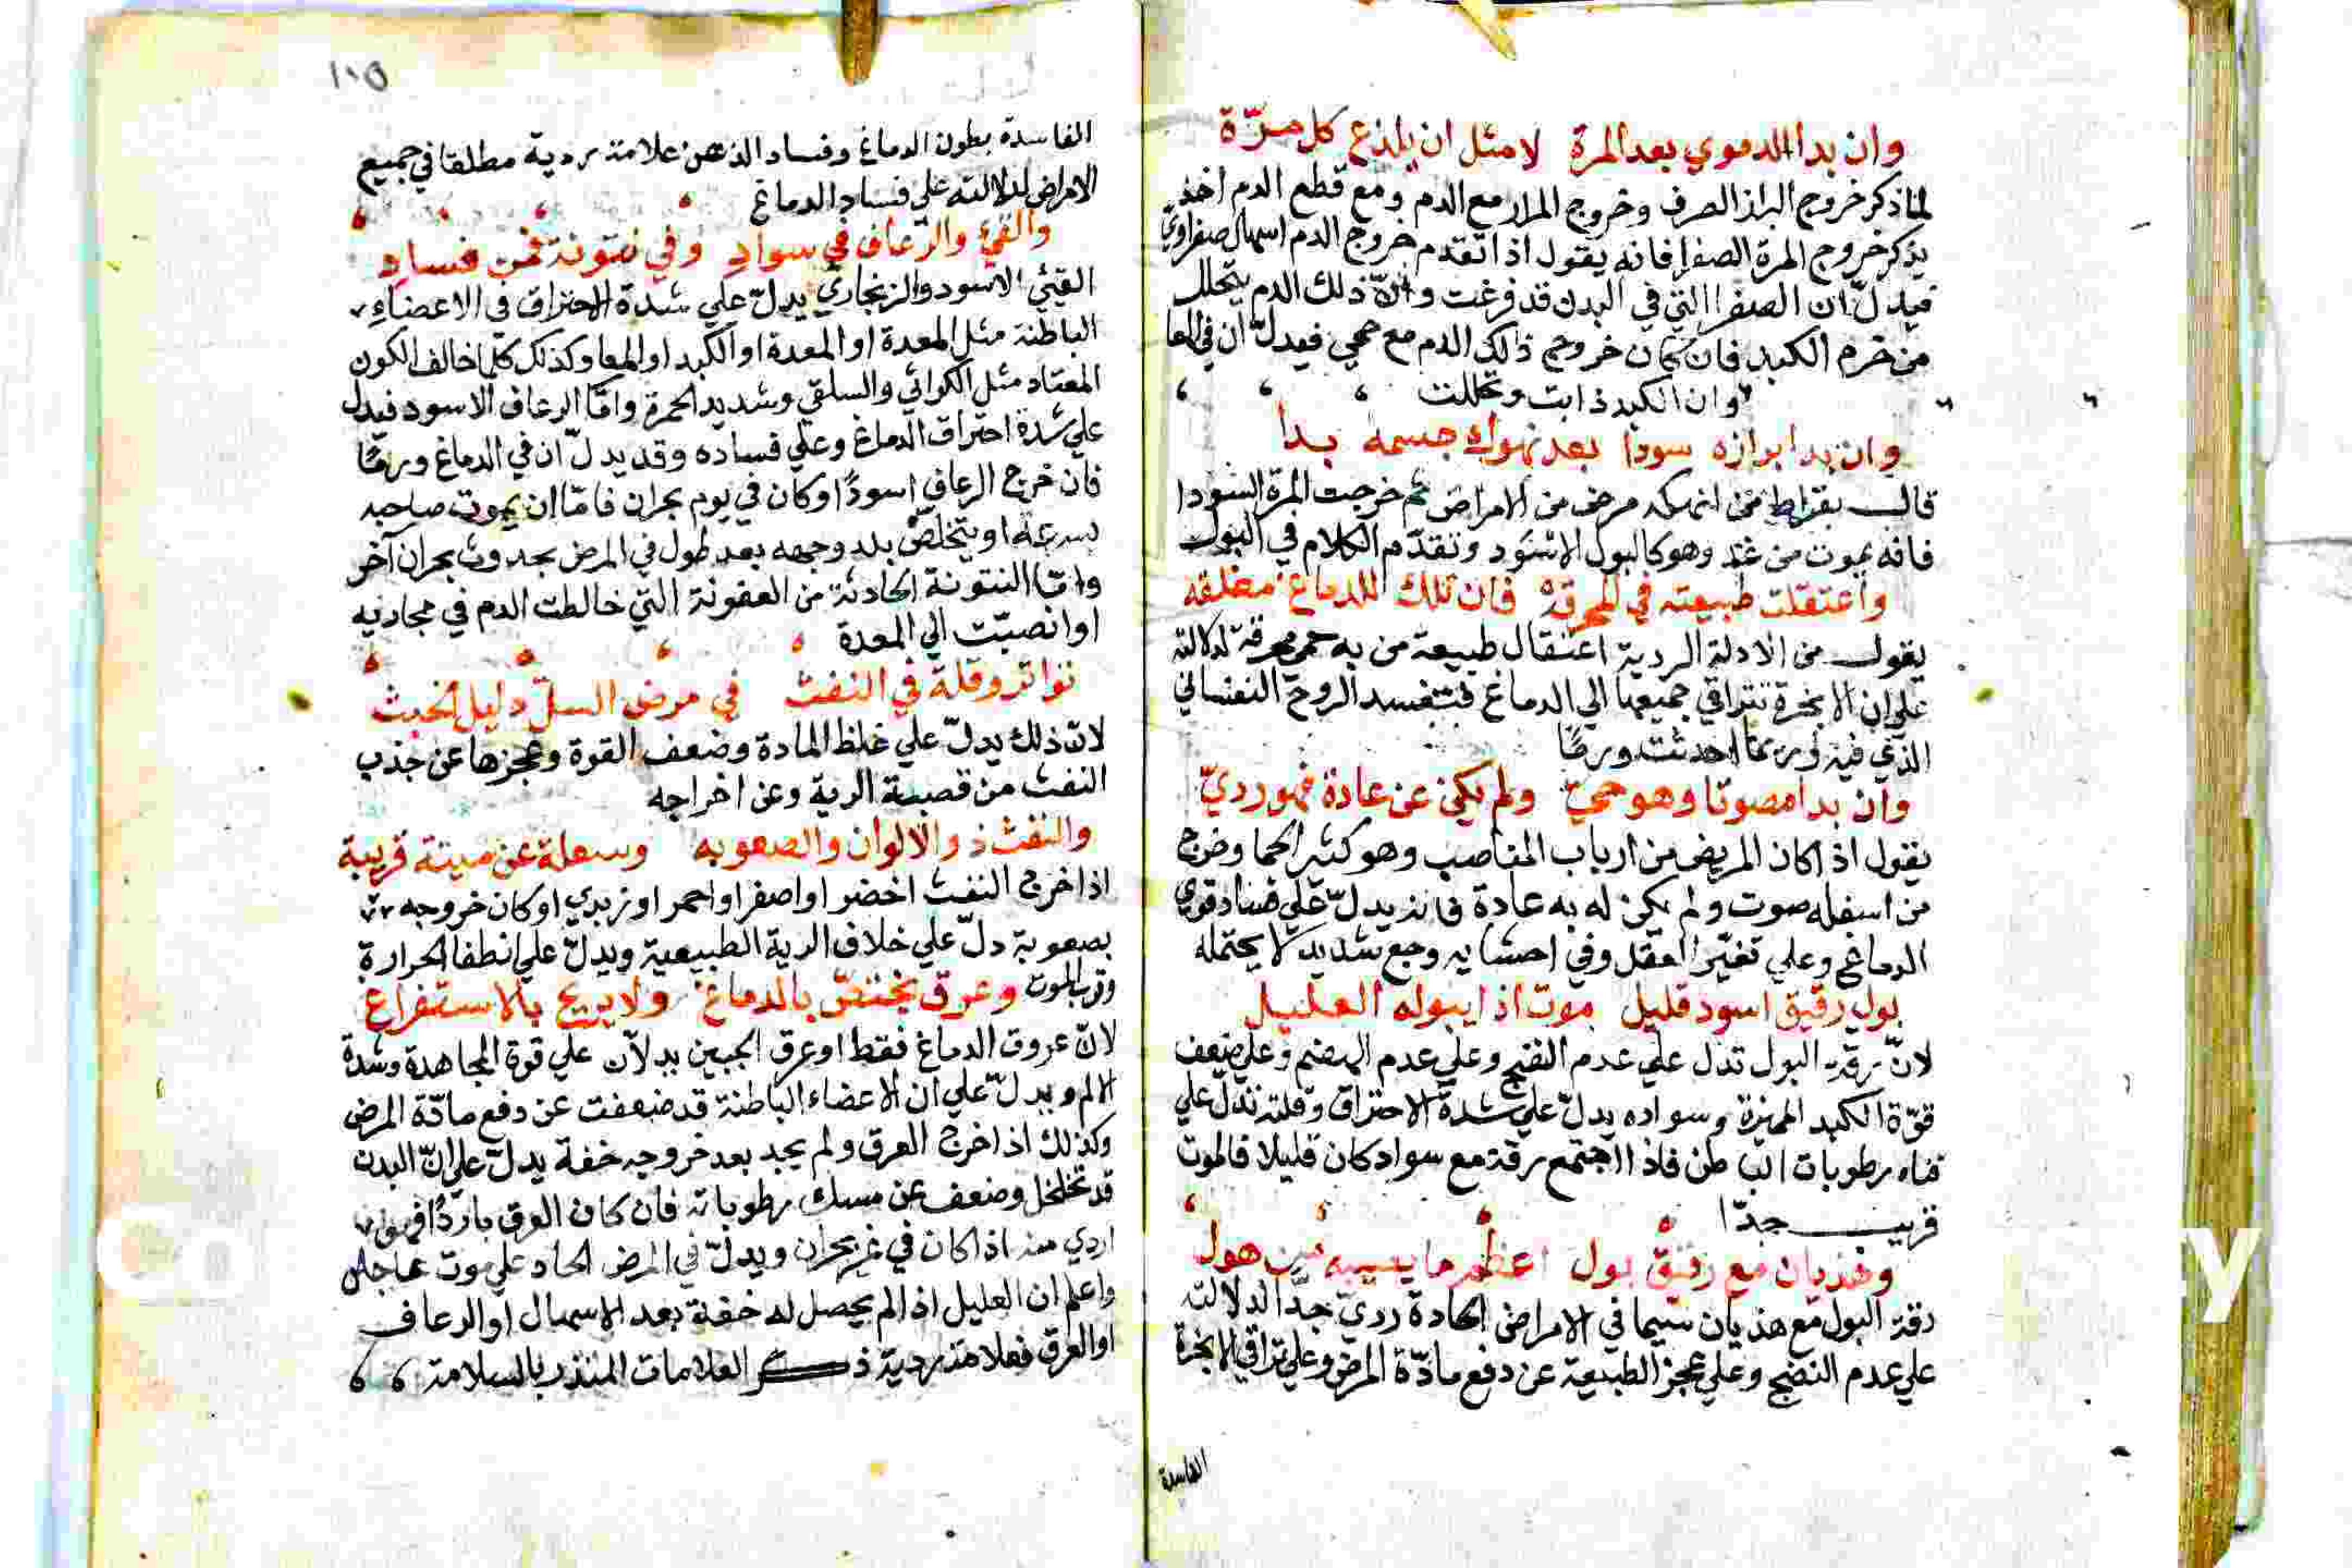 وان بدا الدموي بعد المرة لا مثل ان يلذع كل مرّة
لما ذكر خروج البراز الصرف وخروج المرار مع الدم ومع قطع الدم اخذ
يذكر خروج المرة الصفرا فانه يقول اذا تقدم خروج الدم اسهال صفراوي
فيدلّ ان الصفرا التي في البدن قد فرغت وانّ ذلك الدم يتحلل
من جرم الكبد فان كان خروج ذلك الدم مع حمي فيدلّ ان في المعا
وان الكبد ذابت وتحللت
وان بدا برازه سودا بعد نهوك جسمه بدا
قال بقراط من انهكه مرض من الامراض ثم خرجت المرة السودا
فانه يموت من غد وهو كالبول الاسود وتقدّم الكلام في البول
واعتقلت طبيعته في المحرقه فان تلك للدماغ مغلقه
يقول من الادلة الردية اعتقال طبيعة من به حمي محرقة لدلالته
علي ان الابخرة تتراقي جميعها الي الدماغ فتفسد الروح النفساني
الذي فيه وربما احدثت ورمًا
وان بدا مصوتا وهو حيّ ولم يكن عن عادة فهو رديّ
يقول اذا كان المريض من ارباب المناصب وهو كثير الحيا وخرج
من اسفله صوت ولم يكن له به عادة فانه يدلّ علي فساد قوي
الدماغ وعلي تغيّر العقل وفي احشايه وجع شديد لا يحتمله
بول رقيق اسود قليل موت اذا يبوله العليل
لانّ رقة البول تدل علي عدم النضج وعلي عدم الهضم وعلي ضعف
قوّة الكبد المميزة وسواده يدلّ علي شدة الاحتراق وقلته تدلّ علي
فناء رطوبات الباطن فاذا اجتمع رقة مع سواد كان قليلا فالموت
قريب جدّا
وهذيان مع رقيق بول اعظم ما يصيبه من هول
رقة البول مع هذيان سيما في الامراض الحادة رديّ جدّا لدلالته
علي عدم النضج وعلي عجز الطبيعة عن دفع مادّة المرض وعلي تراقي الابخرة
الفاسدة
١٠٥
الفاسدة بطون الدماغ وفساد الذهن علامة ردية مطلقا في جميع
الامراض لدلالته علي فساد الدماغ
والقيئ والرّعاف في سواد وفي نتونة فمن فساد
القيئ الاسود والزنجاري يدلّ علي شدة الاحتراق في الاعضاءِ
الباطنة مثل المعدة او المعدة او الكبد او المعا وكذلك كلّما خالف الكون
المعتاد مثل الكراثي والسلقي وشديد الحمرة وامّا الرعاف الاسود فيدل
علي شدة احتراق الدماغ وعلي فساده وقد يدلّ ان في الدماغ ورمًا
فان خرج الرعاف اسودًا وكان في يوم بحران فامّا ان يموت صاحبه
بسرعة او يتخلص بلد وجهه بعد طول في المرض بحدوث بحران آخر
وامّا النتونة الحادثة من العفونة التي خالطت الدم في مجاريه
او انصبّت الي المعدة
تواتر وقلة في النفث في مرض السلّ دليل الخبث
لانّ ذلك يدلّ علي غلظ المادة وضعف القوة وعجزها عن جذب
النفث من قصبة الرية وعن اخراجه
والنفث ذو الالوان والصعوبه وسعلة عن ميتة قريبة
اذا خرج النفث اخضر او اصفر او احمر او زبدي او كان خروجه
بصعوبة دلّ علي خلاف الرية الطبيعية ويدلّ علي انطفا الحرارة
وقرب الموت وعرق يختصّ بالدماغ ولا يريح بالاستفراغ
لانّ عروق الدماغ فقط او عرق الجبين يدلان علي قوة المجاهدة وشدة
الالم ويدلّ علي ان الاعضاء الباطنة قد ضعفت عن دفع مادّة المرض
وكذلك اذا خرج العرق ولم يجد بعد خروجه خفة يدلّ علي انّ البدن
قد تخلخل وضعف عن مسك رطوباته فان كان العرق باردًا فهو
اردي منه اذا كان في غير بحران ويدلّ في المرض الحاد علي موت عاجل
واعلم ان العليل اذا لم يحصل له خفة بعد الاسهال او الرعاف
او العرق فعلامة ردية ذكر العلامات المنذر بالسلامة